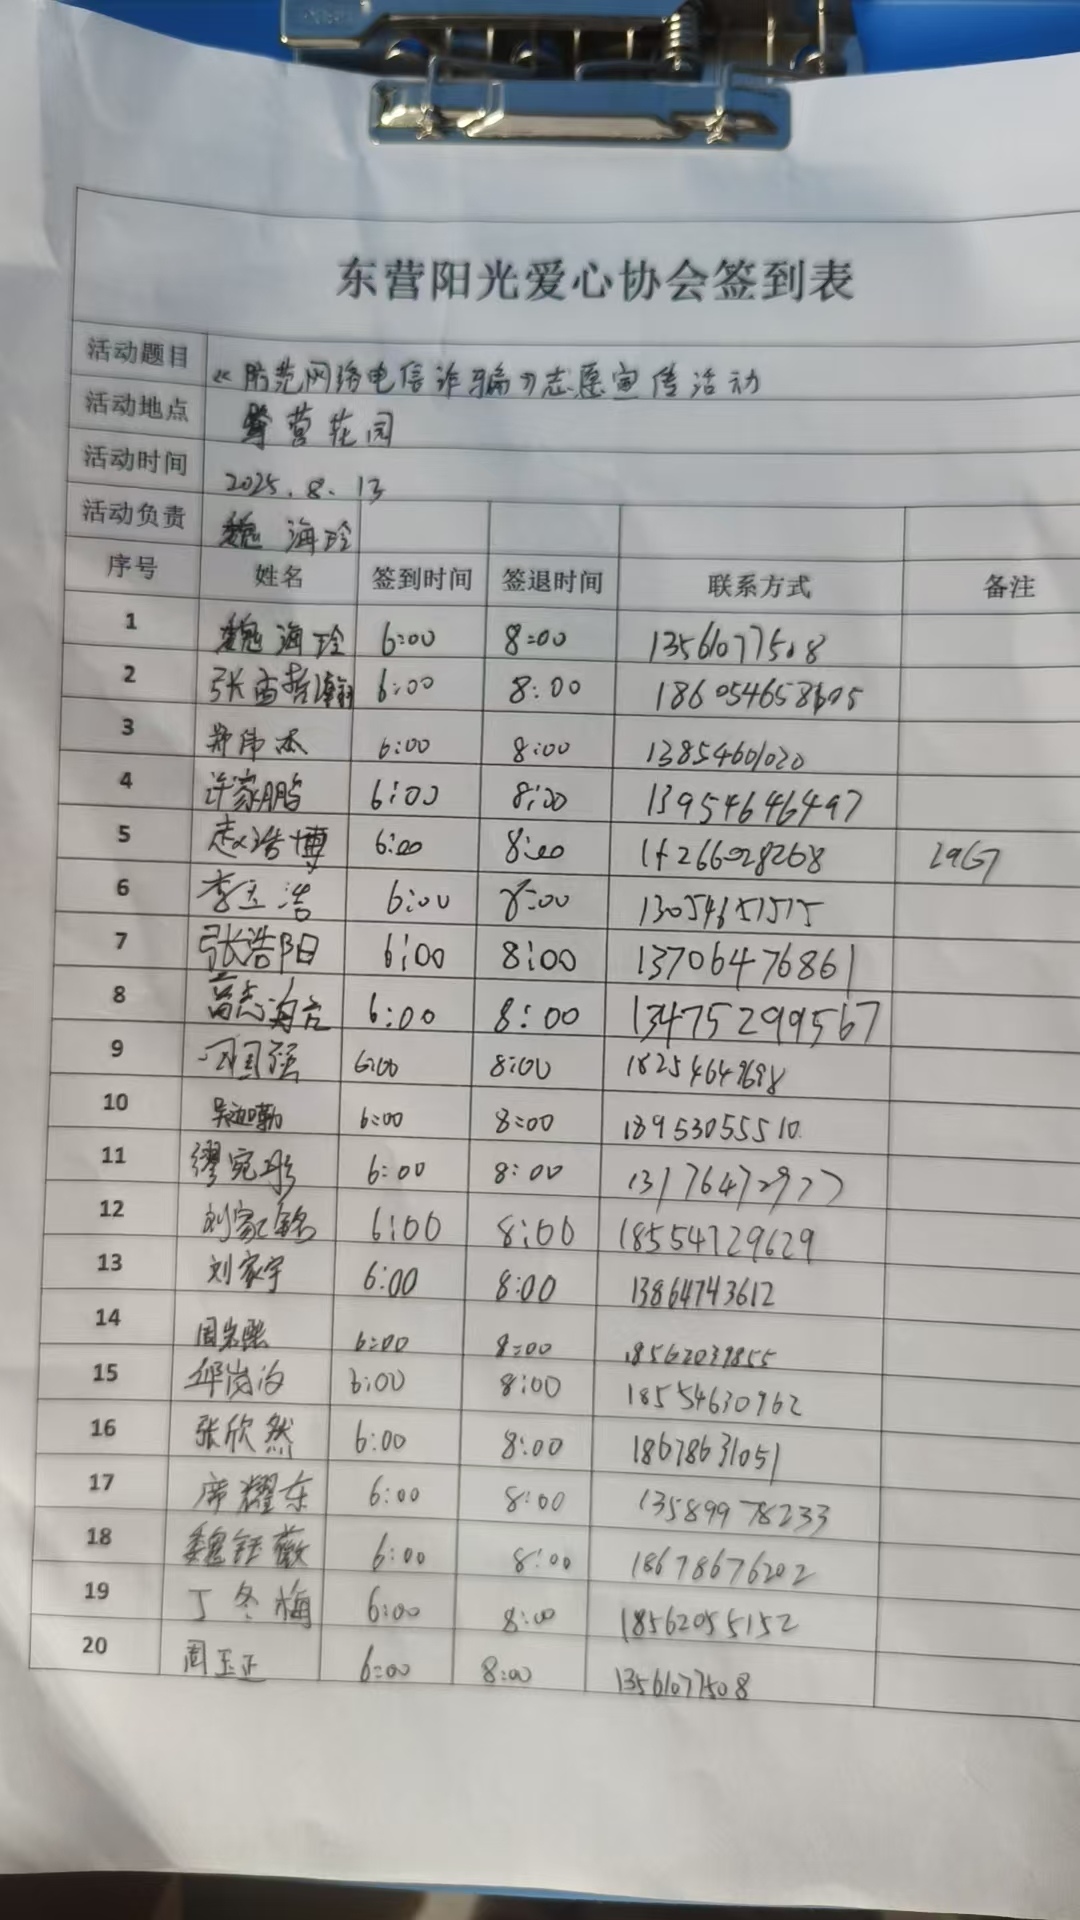 东营阳光爱心协会签到表
活动题目 《防范网络电信诈骗》志愿宣传活动
活动地点 营花园
活动时间 2025.8.13
活动负责 魏海玲
序号 姓名 签到时间 签退时间 联系方式 备注
1 魏海玲 6:00 8:00 13561077508
2 张 哲瀚 6:00 8:00
3 郑伟杰 6:00 8:00 13854601020
4 许家鹏 6:00 8:00 13954646497
5 赵浩博 6:00 8:00
6 李玉浩 6:00 8:00
7 张浩阳 6:00 8:00 13706476861
8 6:00 8:00 13475299567
9 国强 6:00 8:00
10 6:00 8:00 18953055510
11 缪宛彤 6:00 8:00 13176472977
12 刘家铭 6:00 8:00 18554729629
13 刘家宇 6:00 8:00 13864743612
14 6:00 8:00
15 6:00 8:00 18554630962
16 张欣然 6:00 8:00 18678631051
17 席耀东 6:00 8:00 13589978233
18 魏钰薇 6:00 8:00 18678676202
19 丁冬梅 6:00 8:00 18562055152
20 周玉正 6:00 8:00 13561077508